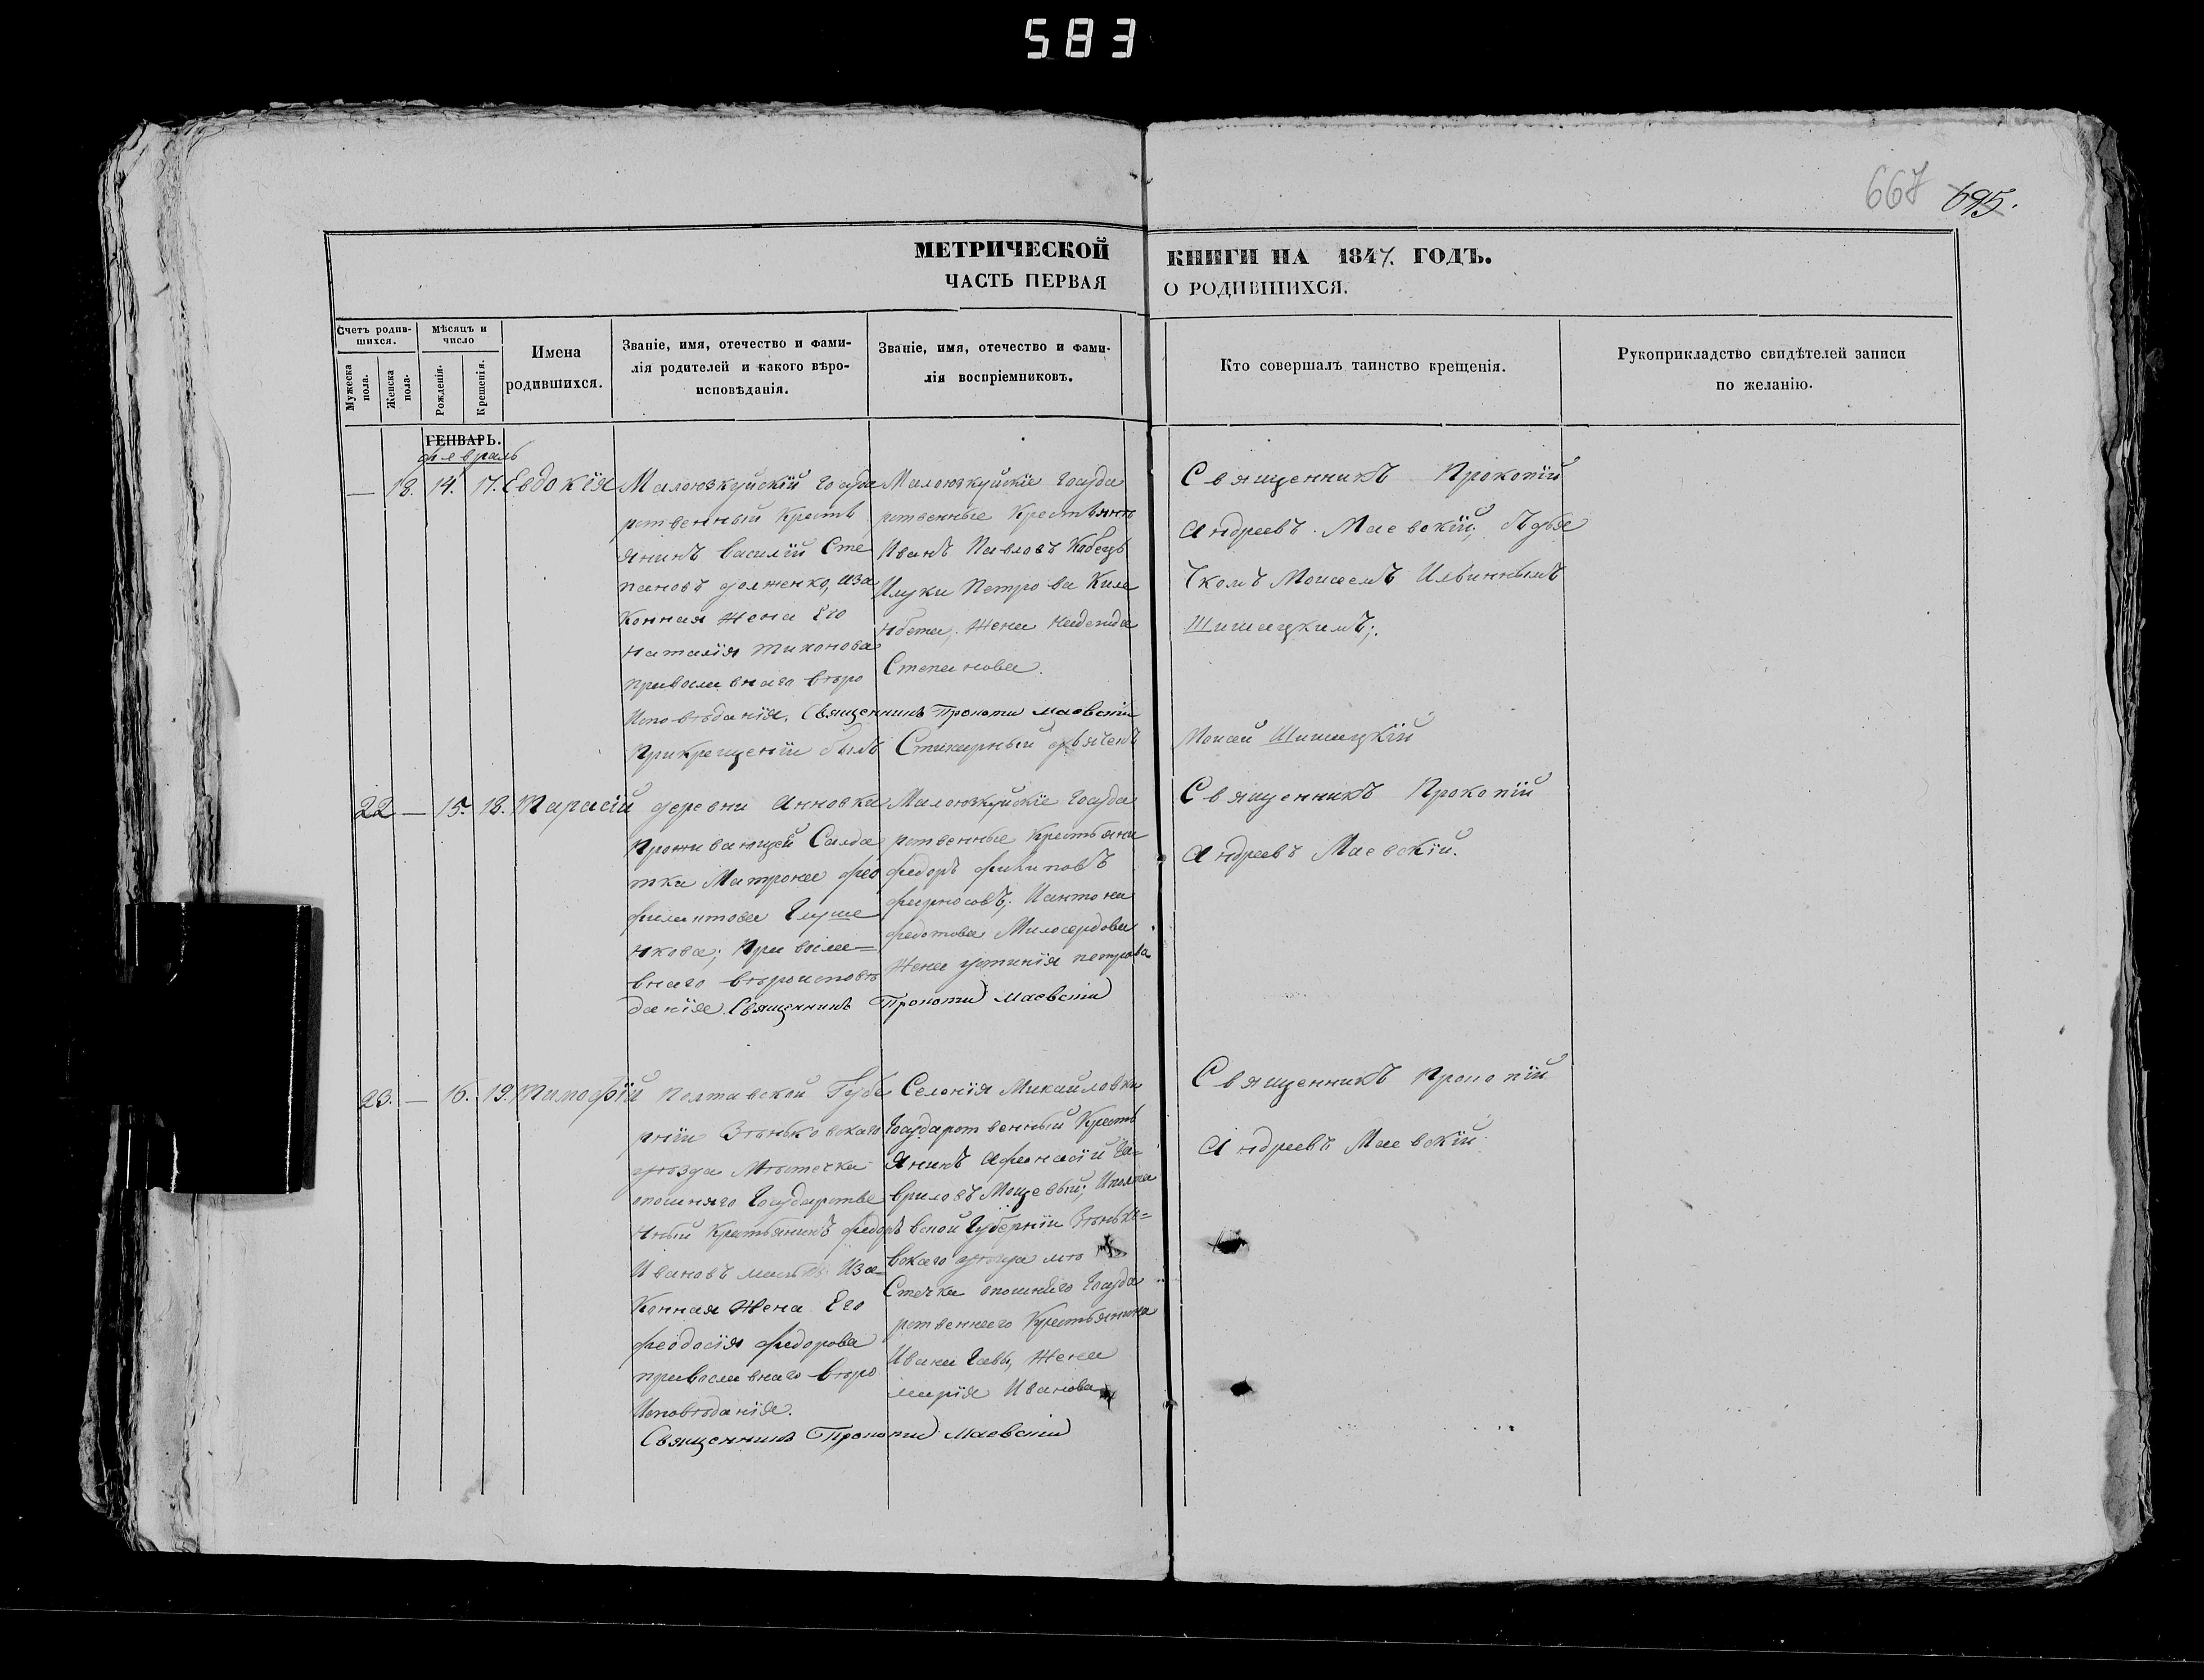 583
667 695.
МЕТРИЧЕСКОЙ КНИГИ НА 1847. ГОДЪ.
ЧАСТЬ ПЕРВАЯ О РОДИВШИХСЯ.
Счетъ родив-
шихся.
Мужеска
пола.
Женска
пола.
Мѣсяцъ и
число
Рожденія.
Крещенія.
Имена
родившихся.
Званіе, имя, отечество и фами-
лія родителей и какого вѣро-
исповѣданія.
Званіе, имя, отечество и фами-
лія воспріемниковъ.
Кто совершалъ таинство крещенія.
Рукоприкладство свидѣтелей записи
по желанію.
ГЕНВАРЬ.
февраль
— 18. 14. 17. Евдокія
Малоюзкуйскій Госуда
рственный Кресть
янинъ Василій Сте
пановъ долженко, иза
конная жена Его
Наталія тихонова
православнаго вѣро
Исповѣданія. Священникъ Прокопій маевскій
Прикрещеніи былъ Стихарный дьячекъ
Малоюзкуйскіе Госуда
рственные Крестьяне
Иванъ Павловъ
Илуки Петрова
жена надежда
Степанова.
Священникъ Прокопій
Андреевъ Маевскій; съдья
чкомъ Моисеемъ Ильиннымъ
Шишацкимъ;
Моисей Шишацкій
22 — 15. 18. Тарасій
деревни Анновка
Проживающей Салда
тки Матроне фео
филактова
нкова; Православ=
внаго вѣроисповѣ
данія. Священникъ Прокопій маевскій
Малоюзкуйскіе Госуда
рственные Крестьяни
федоръ филиповъ
Иантона
федотова Милосердова
жена устинія петрова
Священникъ Прокопій
Андреевъ Маевскій.
23. — 16. 19. Тимофій
Полтавской Губе
рніи Зѣньковскаго
уѣзда Мѣстечка
опошняго Государстве
нный Крестьянинъ федоръ
Ивановъ Иза=
Конная жена Его
феодосія федорова
православнаго вѣро
Исповѣданія.
Священникъ Прокопій маевскій
Селенія Михайловки
Государственный Кресть
янинъ Афонасій Га=
вриловъ Ипольта
вской Губерніи Зѣньк=
вскаго уѣзда мѣ
стечка опошняго Госуда
рственнаго Крестьянина
Ивана жена
марія Иванова
Священникъ Прокопій
Андреевъ Маевскій.